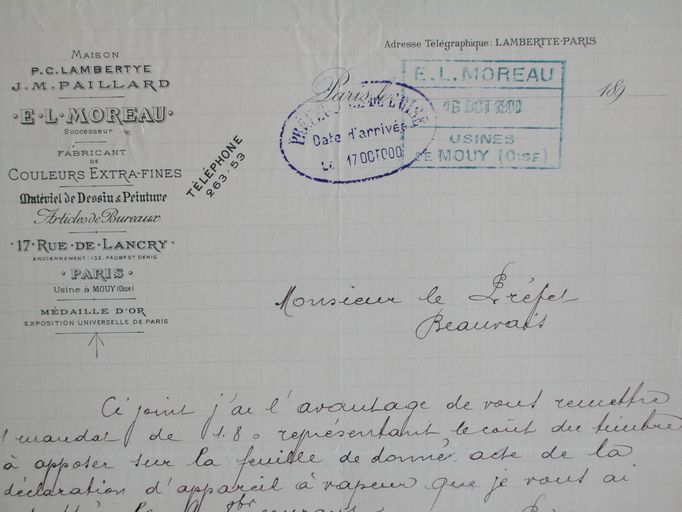 Adresse Télégraphique: LAMBERTYE-PARIS
MAISON
P.C. LAMBERTYE
J.M. PAILLARD
E·L·MOREAU
Successeur
FABRICANT
DE
COULEURS EXTRA-FINES
Matériel de Dessin & Peinture
Articles de Bureaux
17·RUE·DE·LANCRY
ANCIENNEMENT: 132. FAUBG ST DENIS
PARIS
Usine à MOUY (Oise)
MÉDAILLE D'OR
EXPOSITION UNIVERSELLE DE PARIS
TÉLÉPHONE
263-53
Paris, le 189
PRÉFECTURE DE L'OISE
Date d'arrivée
LE 17 OCT 000
E.L. MOREAU
16 OCT 1900
USINES
DE MOUY (OISE)
Monsieur le Préfet
Beauvais
Ci joint j'ai l'avantage de vous remettre
1 mandat de représentant le coût du timbre
à apposer sur la feuille de donné acte de la
déclaration d'appareil à vapeur que je vous ai